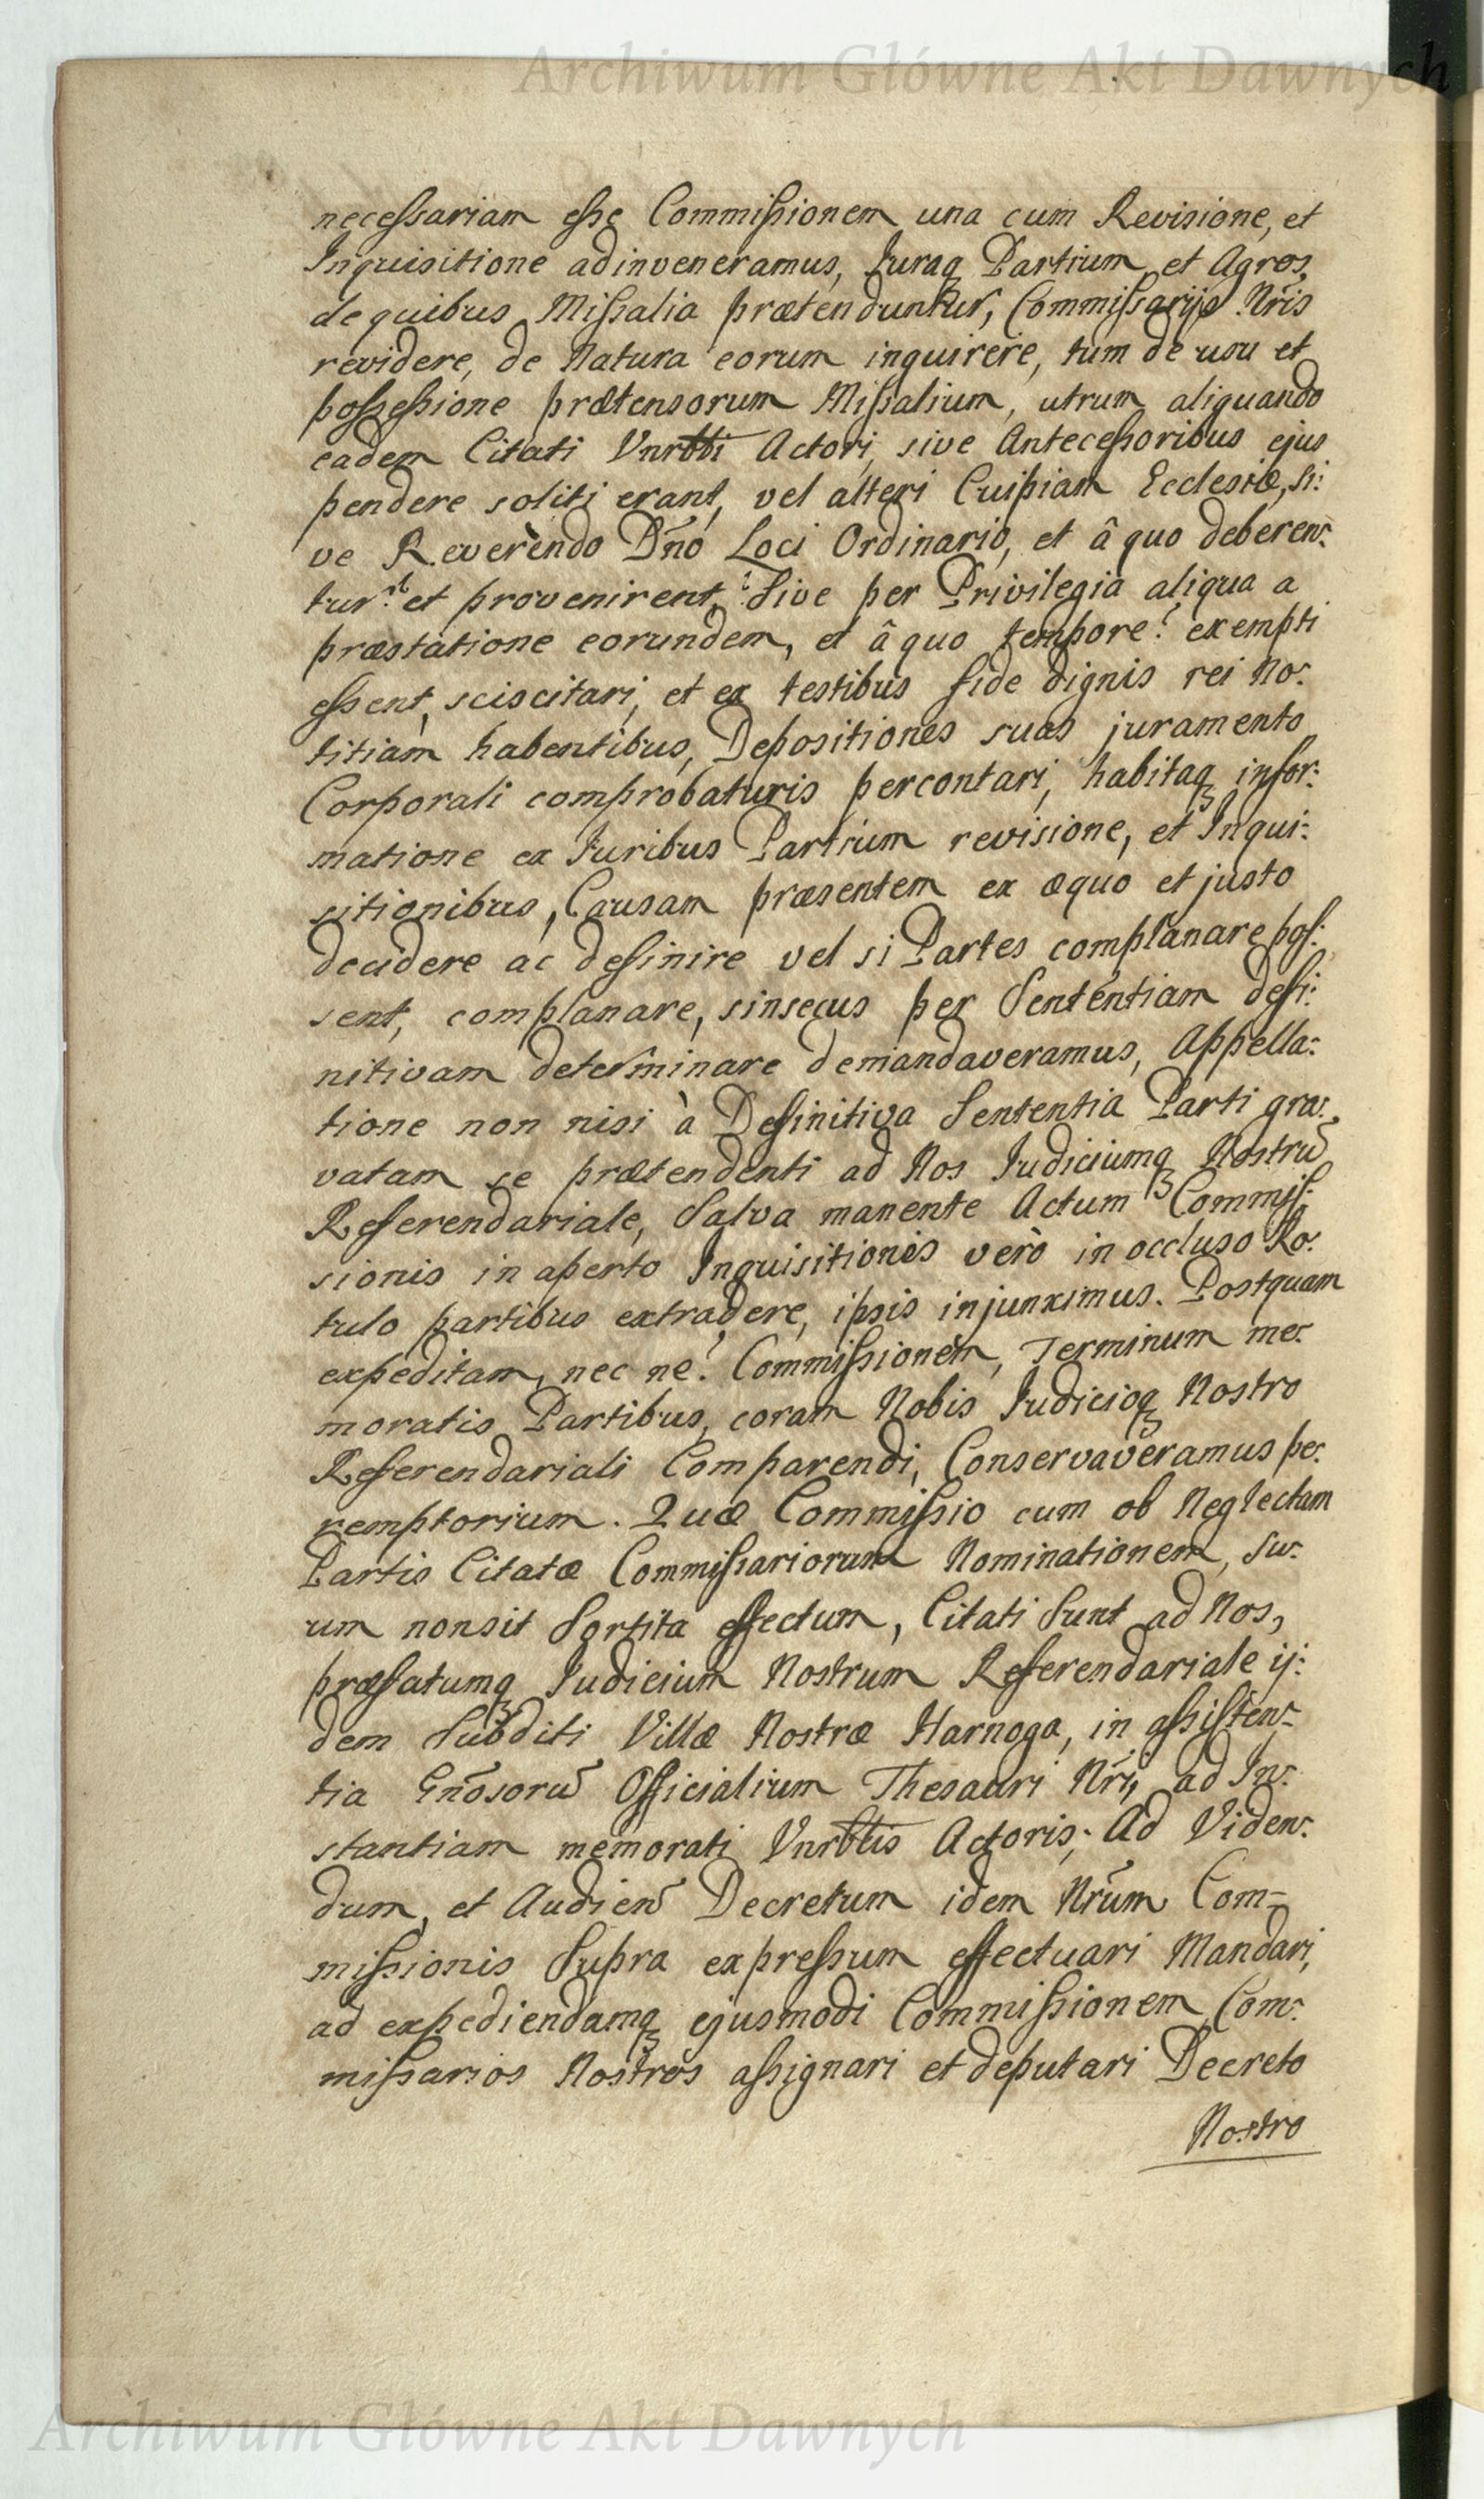 Archiwum Główne Akt Dawnych
necessariam esse Commissionem una cum Revisione, et
Inquisitione adinveneramus, Juraq Partium, et Agros,
de quibus Missalia prætenduntur, Commissarijs Nr̃is
revidere, de Natura eorum inquirere, tum de usu et
possessione prætensorum Missalium, utrum aliquando
eadem Citati Vnrbbi Actori, sive Antecessoribus ejus
pendere soliti erant, vel alteri Cuipiam Ecclesiæ, si:
ve Reverendo Dño Loci Ordinario, et â quo deberen:
tur? et provenirent? Sive per Privilegia aliqua a
præstatione eorundem, et â quo tempore? exempti
essent, sciscitari, et ex testibus fide dignis rei no:
titiam habentibus, Depositiones suas juramento
Corporali comprobaturis percontari, habitaq infor:
matione ex Juribus Partium revisione, et Inqui:
sitionibus, Causam præsentem ex æquo et justo
decidere ac definire vel si Partes complanare pos:
sent, complanare, sinsecus per Sententiam defi:
nitivam determinare demandaveramus, Appella:
tione non nisi à Definitiva Sententia Parti gra:
vatam se prætendenti ad Nos Judiciumq Nostrū
Referendariale, Salva manente Actum Commis:
sionis in aperto Inquisitionis verò in occluso Ro:
tulo partibus extradere, ipsis injunximus. Postquam
expeditam, nec ne? Commissionem, Terminum me:
moratis Partibus, coram Nobis Judicioq Nostro
Referendariali Comparendi, Conservaveramus pe:
remptorium. Quæ Commissio cum ob Neglectam
Partis Citatæ Commissariorum Nominationem, su:
um non sit Sortita effectum, Citati Sunt ad Nos,
præfatumq Judicium Nostrum Referendariale ij:
dem Subditi Villæ Nostræ Harnoga, in assisten:
tia Gñosorū Officialium Thesauri Nr̃i, ad In:
stantiam memorati Vnrbblis Actoris; Ad Viden:
dum, et Audien̄ Decretum idem Nr̃um Com=
missionis Supra expressum effectuari Mandari,
ad expediendamq ejusmodi Commissionem Com:
missarios Nostros assignari et deputari Decreto
Nostro
Archiwum Główne Akt Dawnych